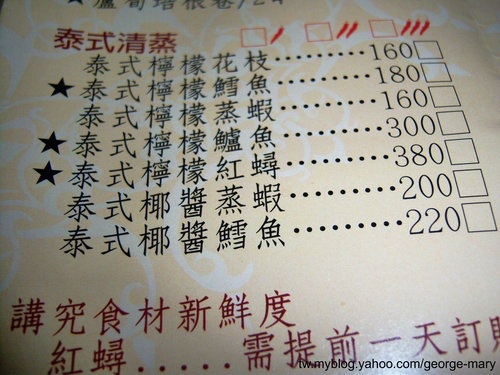 ★蘆筍培根卷/24
泰式清蒸 □ □ □
泰式檸檬花枝··········160□
★泰式檸檬鱈魚··········180□
泰式檸檬蒸蝦··········160□
★泰式檸檬鱸魚··········300□
★泰式檸檬紅蟳··········380□
泰式椰醬蒸蝦··········200□
泰式椰醬鱈魚··········220□
講究食材新鮮度
紅蟳.....需提前一天訂購
tw.myblog.yahoo.com/george-mary